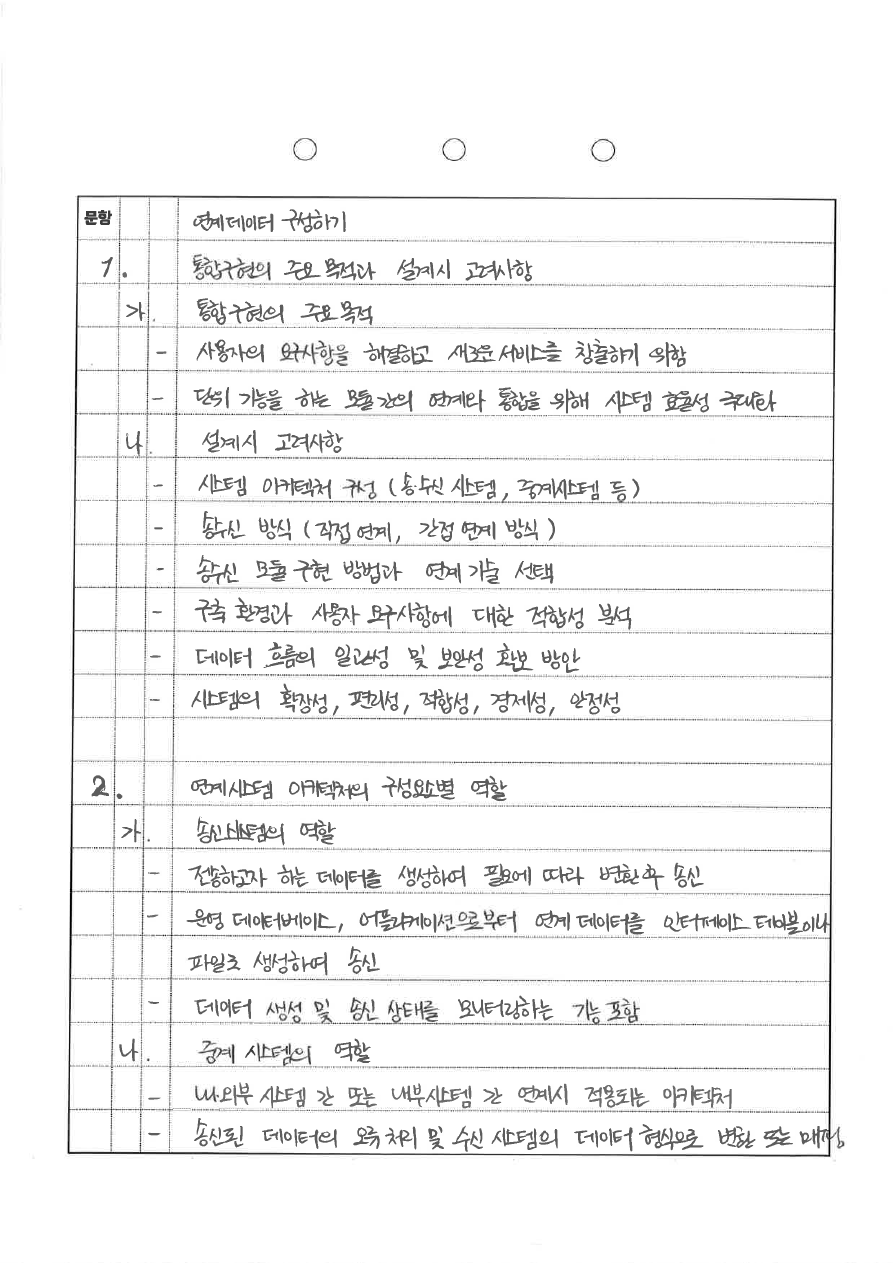 문항 연계데이터 구성하기
1. 통합구현의 주요목적과 설계시 고려사항
가. 통합구현의 주요목적
- 사용자의 요구사항을 해결하고 새로운 서비스를 창출하기 위함
- 단위 기능을 하는 모듈간의 연계와 통합을 위해 시스템 효율성 극대화
나. 설계시 고려사항
- 시스템 아키텍처 구성 (송·수신 시스템, 중계시스템 등)
- 송수신 방식 (직접연계, 간접연계 방식)
- 송수신 모듈 구현 방법과 연계기술 선택
- 구축 환경과 사용자 요구사항에 대한 적합성 분석
- 데이터 흐름의 일관성 및 보안성 확보 방안
- 시스템의 확장성, 편리성, 적합성, 경제성, 안정성
2. 연계시스템 아키텍처의 구성요소별 역할
가. 송신시스템의 역할
- 전송하고자 하는 데이터를 생성하여 필요에 따라 변환후 송신
- 운영 데이터베이스, 어플리케이션으로부터 연계 데이터를 인터페이스 테이블이나
파일로 생성하여 송신
- 데이터 생성 및 송신 상태를 모니터링하는 기능 포함
나. 중계 시스템의 역할
- 내·외부 시스템 간 또는 내부시스템 간 연계시 적용되는 아키텍처
- 송신된 데이터의 오류처리 및 수신 시스템의 데이터 형식으로 변환 또는 매핑